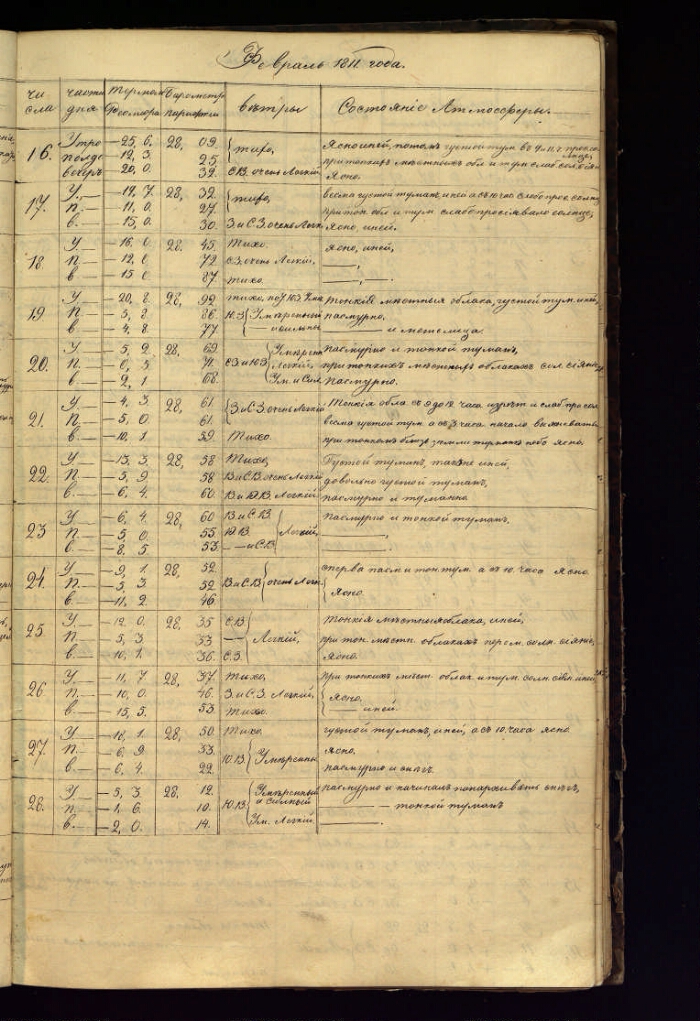 Февраль 1811 года.
чи части Термом Барометр вѣтры Состоянiе Атмоссферы.
сла дня Реомюра Парижски
16. Утро — 25, 6. 28, 09. тихо, Ясно иней, потомъ густой тум
полде — 12, 3. 25. при тонкихъ мѣстныхъ обл и тум слаб
вечеръ — 20, 0. 32. С.В. очень Легкiй, Ясно.
17. У. — 19, 7. 28, 32. тихо, весма густой туманъ, иней а съ 10 час слабо
п. — 11, 0. 27. при тон обл и тум слабо просiявало солнце,
в. — 15, 0. 30. З. и С.З. очень Легк. Ясно, иней.
18 У — 16, 0 28, 45 Тихо. Ясно, иней,
п. — 12, 0 72 С.З. очень Легкiй, —,
в — 15 0 87. тихо. —,—.
19 У — 20, 8. 28, 92 тихо, тонкiе мѣстныя облака, густой тум. иней,
п. — 5, 8 86 Ю.З Умѣренный пасмурно,
в. — 4, 8. 77 — и сильны — и метелица.
20. У — 5, 9 28, 69 Умѣрен пасмурно и тонкой туманъ,
п. — 6, 5 71 С.З. и Ю.З. Легкiй, при тонкихъ мѣстныхъ облакахъ сол. сiян
в. — 2, 1 68. Ум. и Сил пасмурно.
21. У — 4, 3 28, 61 З. и С.З. очень Легкiй Тонкiя обла съ 9 до 12 часа
п. — 5, 0 61. весма густой тум а съ 3 часа начало
в. — 10, 1 59 Тихо. при тонкомъ близь земли туманѣ небо Ясно.
22. У — 13, 3. 28, 58 Тихо, Густой туманъ, также иней,
п. — 5, 9 58 В. и С.В. очень Легкiй довольно густой туманъ,
в. — 6, 4. 60 В. и Ю.В. Легкiй, пасмурно и туманно
23 У — 6, 4. 28, 60 В. и С.В. Легкiй, пасмурно и тонкой туманъ.
п. — 5, 0 55 Ю.В. —,
в. — 8, 5 53 — и С.В —.
24. У — 9, 1 28, 52. сперва пасм и тон тум. а съ 10. часа Ясно
п. — 5, 3 52 В. и С.В очень Легк. Ясно.
в. — 11, 2 46
25 У — 12, 0. 28, 35 С.В. тонкiя мѣстныя облака, иней,
п. — 5, 3 33 — Легкiй, при тон. мѣстн облакахъ сол. сiянiе,
в. — 10, 1. 36 С.З. Ясно.
26 У — 11, 7 28, 37. Тихо, при тонкихъ мѣст. облак. и тум. солн. сiян. иней
п. — 10, 0. 46. З. и С.З. Легкiй, Ясно.
в. — 15, 5. 53 Тихо. — иней.
27. У — 16, 1. 28, 50 Тихо. густой туманъ, иней, а съ 10, часа Ясно
п. — 6, 9 33. Ю.В. Умѣренны Ясно.
в. — 6, 4. 22. пасмурно и снѣгъ.
28. У — 3, 3 28, 12. Умѣренный пасмурно и начиналъ попархивать снѣгъ,
и сильный
п. — 1, 6 10. Ю.В. — — тонкой туманъ
в. — 2, 0. 14. Ум. Легкiй —.